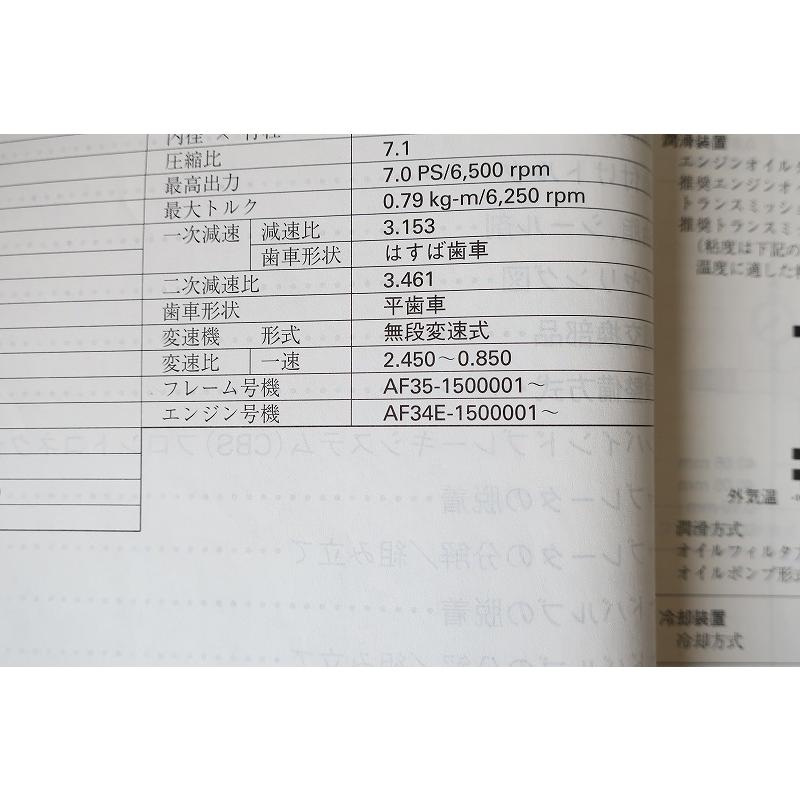 圧縮比 7.1
最高出力 7.0 PS/6,500 rpm
最大トルク 0.79 kg-m/6,250 rpm
一次減速 減速比 3.153
歯車形状 はすば歯車
二次減速比 3.461
歯車形状 平歯車
変速機 形式 無段変速式
変速比 一速 2.450~0.850
フレーム号機 AF35-1500001~
エンジン号機 AF34E-1500001~
潤滑装置
エンジンオイル
推奨エンジンオイ
トランスミッシ
推奨トランスミ
(粘度は下記の
温度に適した
外気温
潤滑方式
オイルフィルタ
オイルポンプ形式
冷却装置
冷却方式